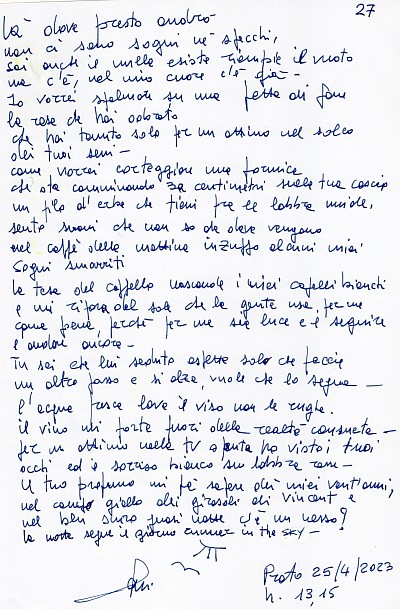 27
Là dove presto andrò
non ci sono sogni nè specchi,
sai anche il nulla esiste riempie il vuoto
ma c'è, nel mio cuore c'è già -
Io vorrei spalmare su una fetta di pane
la rosa che hai odorato
che hai tenuto solo per un attimo nel solco
dei tuoi seni -
come vorrei corteggiare una formica
che sta camminando 32 centimetri sulla tua coscia
un filo d'erba che tieni fra le labbra umide,
sento suoni che non so da dove vengano
nel caffè della mattina inzuppo alcuni miei
sogni smarriti
la tesa del cappello nasconde i miei capelli bianchi
e mi ripara dal sole che la gente usa, per me
come pena, perchè per me sia luce e è seguire
e andare ancora -
Tu sai che lui seduto aspetta solo che faccia
un altro passo e si alza, vuole che lo segua -
l'acqua fresca lava il viso non le rughe.
il vino mi porta fuori dalla realtà consueta -
per un attimo nella TV spenta ho visto i tuoi
occhi ed il sorriso bianco su labbra rosse -
Il tuo profumo mi fà sapere dei miei vent'anni,
nel campo giallo dei girasoli di Vincent e
nel blu scuro quasi notte c'è un nesso?
la notte segue il giorno in the SKY -
Prato 25/4/2023
h. 13 15